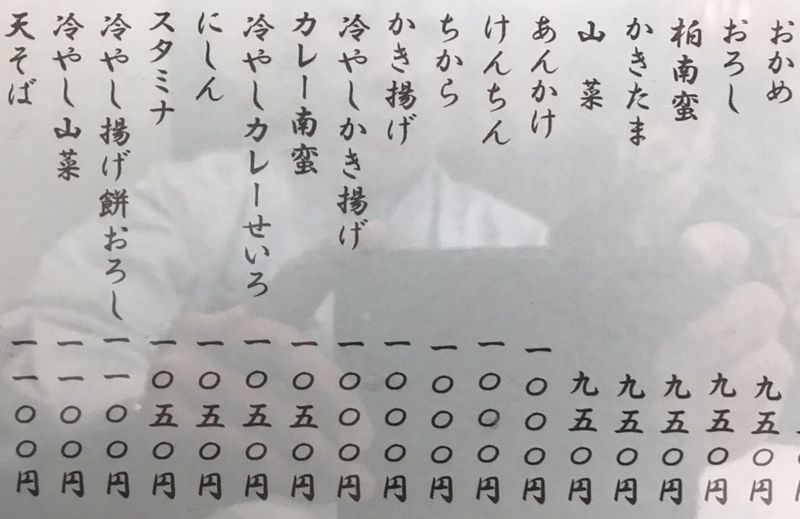 おかめ 九五〇円
おろし 九五〇円
柏南蛮 九五〇円
かきたま 九五〇円
山菜 九五〇円
あんかけ 一〇〇〇円
けんちん 一〇〇〇円
ちから 一〇〇〇円
かき揚げ 一〇〇〇円
冷やしかき揚げ 一〇〇〇円
カレー南蛮 一〇五〇円
冷やしカレーせいろ 一〇五〇円
にしん 一〇五〇円
スタミナ 一〇五〇円
冷やし揚げ餅おろし 一一〇〇円
冷やし山菜 一一〇〇円
天そば 一一〇〇円